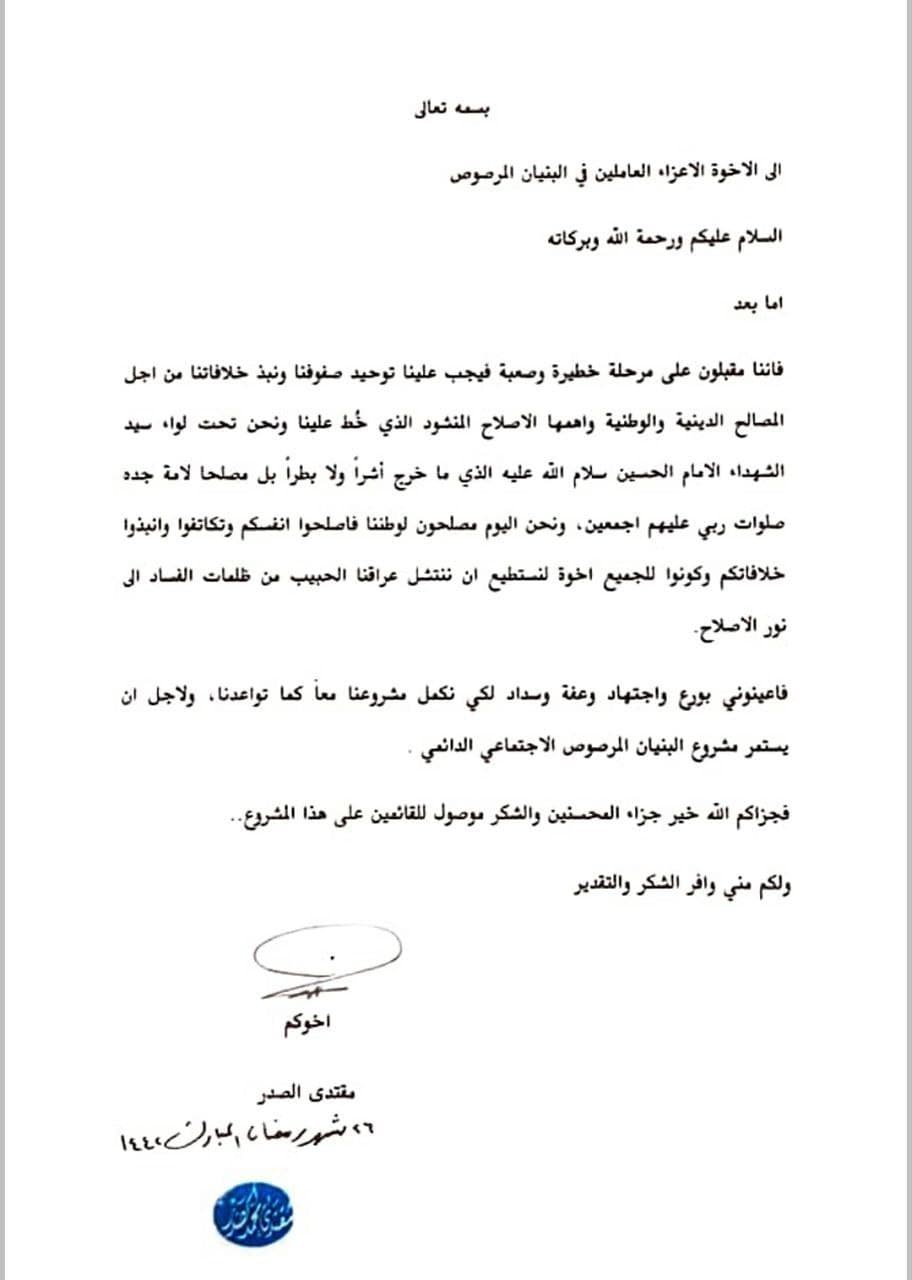 بسمه تعالى
الى الاخوة الاعزاء العاملين في البنيان المرصوص
السلام عليكم ورحمة الله وبركاته
اما بعد
فاننا مقبلون على مرحلة خطيرة وصعبة فيجب علينا توحيد صفوفنا ونبذ خلافاتنا من اجل
المصالح الدينية والوطنية واهمها الاصلاح المنشود الذي خُط علينا ونحن تحت لواء سيد
الشهداء الامام الحسين سلام الله عليه الذي ما خرج أشراً ولا بطراً بل مصلحا لامة جده
صلوات ربي عليهم اجمعين، ونحن اليوم مصلحون لوطننا فاصلحوا انفسكم وتكاتفوا وانبذوا
خلافاتكم وكونوا للجميع اخوة لنستطيع ان ننتشل عراقنا الحبيب من ظلمات الفساد الى
نور الاصلاح.
فاعينوني بورع واجتهاد وعفة وسداد لكي نكمل مشروعنا معاً كما تواعدنا، ولاجل ان
يستمر مشروع البنيان المرصوص الاجتماعي الدائمي .
فجزاكم الله خير جزاء المحسنين والشكر موصول للقائمين على هذا المشروع..
ولكم مني وافر الشكر والتقدير
اخوكم
مقتدى الصدر
٢٦ شهر رمضان المبارك ١٤٤٢